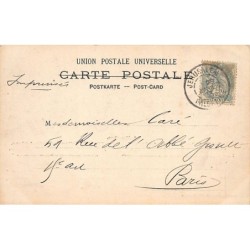 UNION POSTALE UNIVERSELLE
CARTE POSTALE
POSTKARTE - POST-CARD
Imprimés
Mesdemoiselles Caré
51 Rue de l'Abbé
Paris